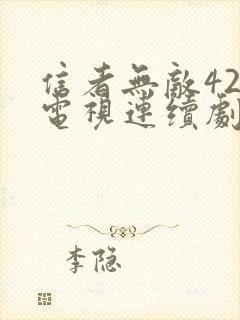 信者無敵42
電視連續劇
李隐